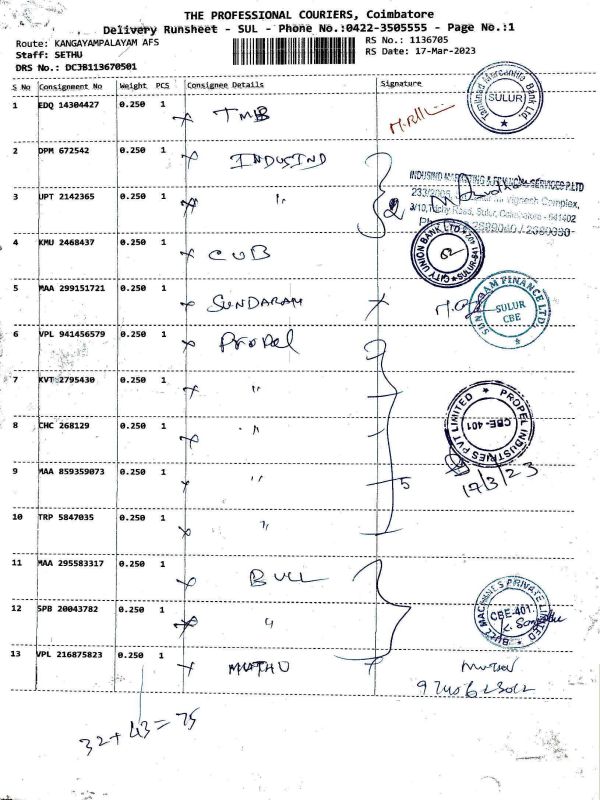 THE PROFESSIONAL COURIERS, Coimbatore
Delivery Runsheet - SUL - Phone No.:0422-3505555 - Page No.:1
Route: KANGAYAMPALAYAM AFS RS No.: 1136705
Staff: SETHU RS Date: 17-Mar-2023
DRS No.: DCJB113670501
S No Consignment No Weight PCS Consignee Details Signature
1 EDQ 14304427 0.250 1 TMB
Tamilnad Mercantile Bank Ltd. SULUR
2 DPM 672542 0.250 1 INDUSIND
INDUSIND MARKETING & FINANCIAL SERVICES P.LTD
Vignesh Complex,
3/10, Trichy Road, Sulur, Coimbatore - 641402
3 UPT 2142365 0.250 1 " 2
4 KMU 2468437 0.250 1 CUB
CITY UNION BANK LTD. SULUR-641 402
5 MAA 299151721 0.250 1 SUNDARAM
SUNDARAM FINANCE LTD. SULUR CBE
6 VPL 941456579 0.250 1 Propel
7 KVT 2795430 0.250 1 "
8 CHC 268129 0.250 1 "
PROPEL INDUSTRIES PVT LIMITED CBE-401
9 MAA 859359073 0.250 1 " 5
17/3/23
10 TRP 5847035 0.250 1 "
11 MAA 295583317 0.250 1 BULL
12 SPB 20043782 0.250 1 "
BULL MACHINES PRIVATE LIMITED CBE-401.
13 VPL 216875823 0.250 1 MUTHU
32+43=75